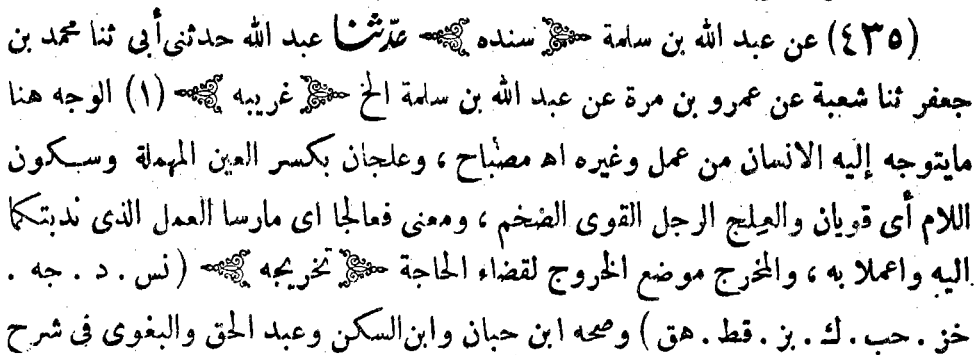 (٤٣٥) عن عبد الله بن سلمة ﴿ سنده ﴾ حدّثنا عبد الله حدثنى أبى ثنا محمد بن
جعفر ثنا شعبة عن عمرو بن مرة عن عبد الله بن سلمة الخ ﴿ غريبه ﴾ (١) الوجه هنا
مايتوجه إليه الانسان من عمل وغيره اه مصباح ، وعلجان بكسر العين المهملة وسكون
اللام أى قويان والعِلج الرجل القوى الضخم ، ومعنى فعالجا اى مارسا العمل الذى ندبتكما
اليه واعملا به ، والمخرج موضع الخروج لقضاء الحاجة ﴿ تخريجه ﴾ ( نس . د . جه .
خز . حب . ك . بز . قط . هق ) وصححه ابن حبان وابن السكن وعبد الحق والبغوى فى شرح